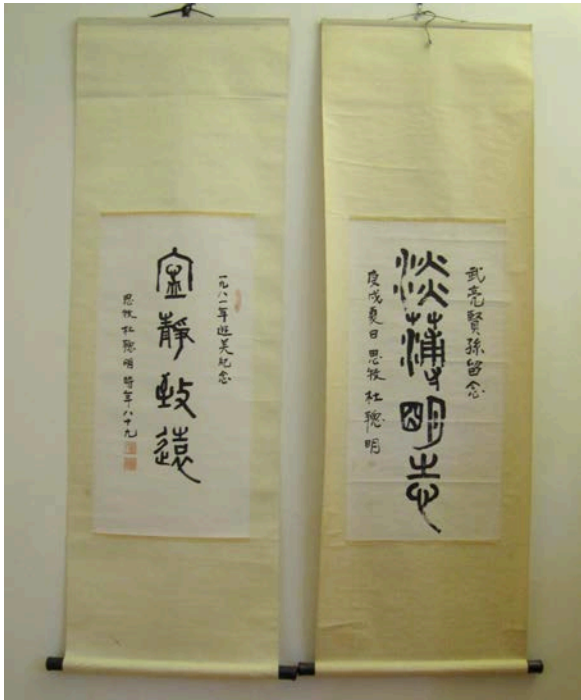 武亮賢孫留念
淡薄明志
庚戌夏日 思牧 杜聰明
一九八一年遊美紀念
寧靜致遠
思牧 杜聰明 時年八十九